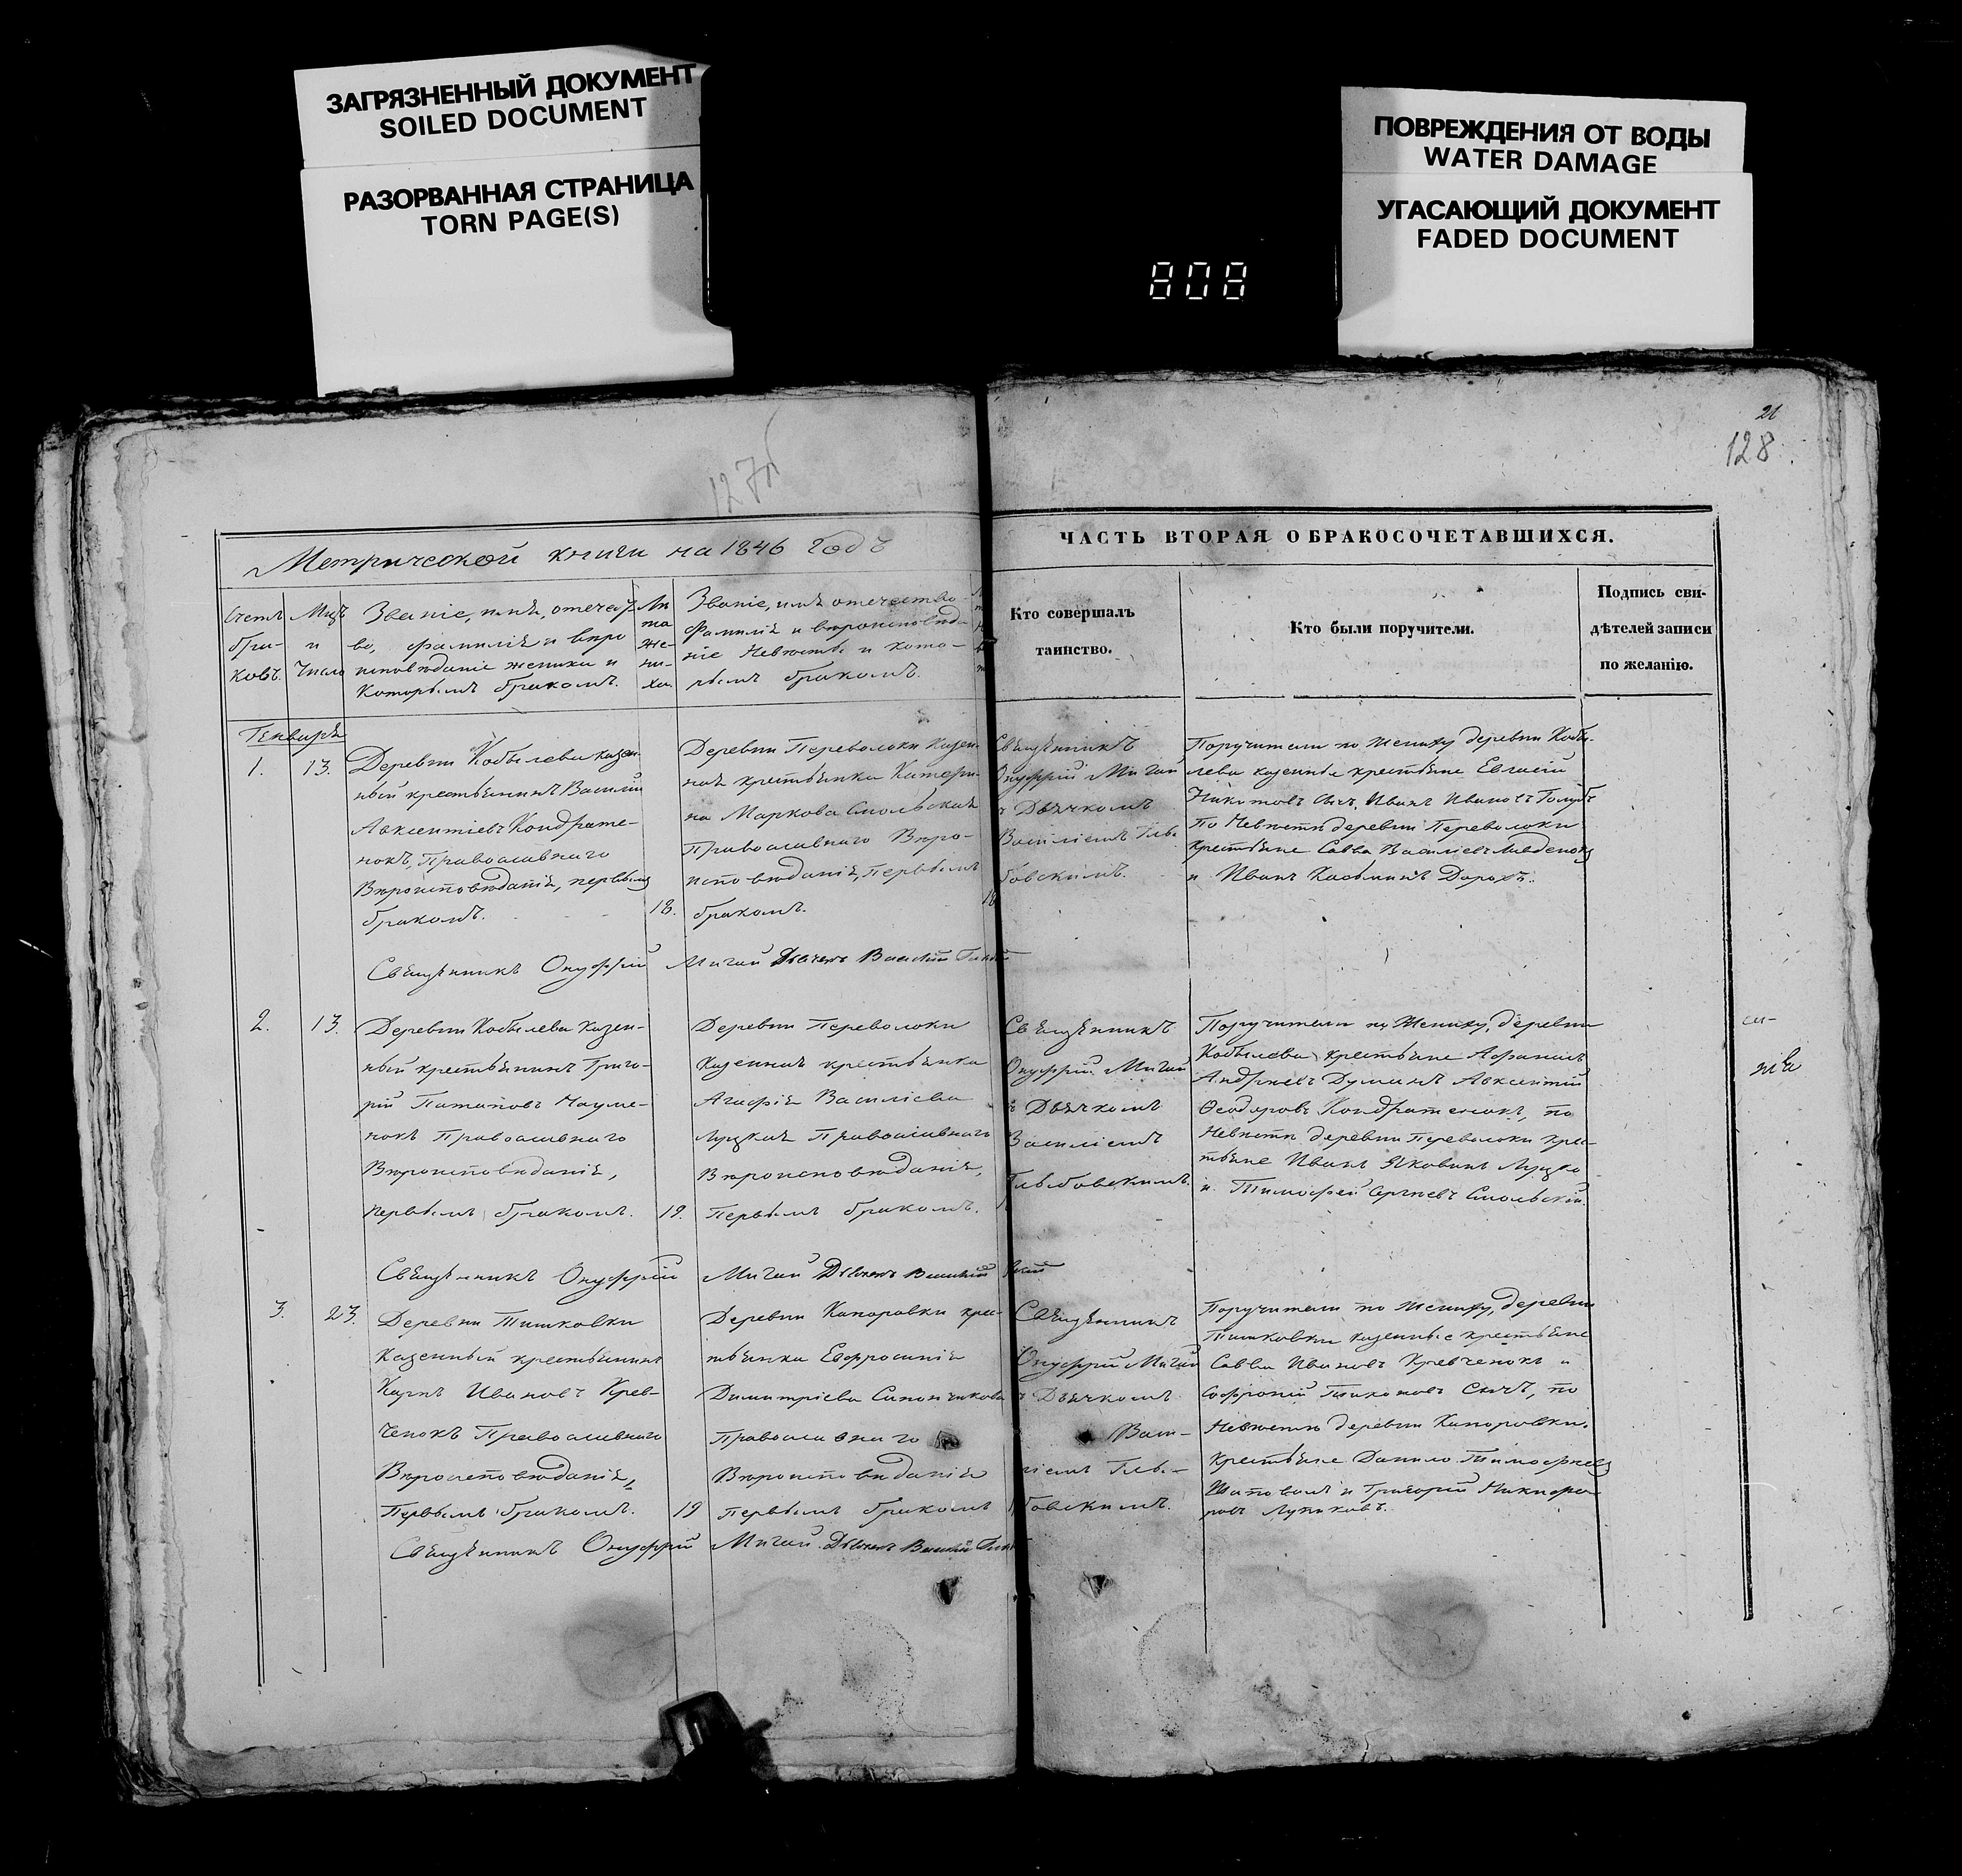 ЗАГРЯЗНЕННЫЙ ДОКУМЕНТ
SOILED DOCUMENT
РАЗОРВАННАЯ СТРАНИЦА
TORN PAGE(S)
ПОВРЕЖДЕНИЯ ОТ ВОДЫ
WATER DAMAGE
УГАСАЮЩИЙ ДОКУМЕНТ
FADED DOCUMENT
808
21
128
127
Метрической книги на 1846 Годъ
ЧАСТЬ ВТОРАЯ О БРАКОСОЧЕТАВШИХСЯ.
Счетъ
бра-
ковъ.
Мцъ
и
Число
Званіе, имя, отечест
во, фамилія и вѣро
исповѣданіе жениха и
которымъ бракомъ.
Лѣ
та
же-
ни-
ха.
Званіе, имя отечество
Фамилія и вѣроисповѣда-
ніе Невѣсты и кото-
рымъ бракомъ.
Кто совершалъ
таинство.
Кто были поручители.
Подпись сви-
дѣтелей записи
по желанію.
Генварь
1.
13.
Деревни Кобылева казен
ный крестьянинъ Василій
Авксентіевъ Кондрате-
нокъ, Православнаго
Вѣроисповѣданія, первымъ
бракомъ.
18.
Деревни Переволоки Казен-
ная крестьянка Катери-
на Маркова Смольская
Православнаго Вѣро-
исповѣданія, Первымъ
бракомъ.
18
Священникъ
Онуфрій Мигай
съ Дьячкомъ
Василіемъ Глы-
бовскимъ.
Поручители по Жениху деревни Кобы-
лева казенные крестьяне
Иванъ Ивановъ
По Невѣстѣ деревни Переволоки
Крестьяне Савва Василіевъ
и Иванъ Касьяновъ
Священникъ Онуфрій Мигай Дьячекъ Василій
2.
13.
Деревни Кобылева Казен-
ный крестьянинъ Григо-
рій Потаповъ Науме-
нокъ Православнаго
Вѣроисповѣданія,
первымъ бракомъ.
19.
Деревни Переволоки
Казенная крестьянка
Агафія Василіева
Луцкая Православнаго
Вѣроисповѣданія,
Первымъ бракомъ.
Священникъ
Онуфрій Мигай
съ Дьячкомъ
Василіемъ
Глыбовскимъ.
Поручители по Жениху, деревни
Кобылева крестьяне
Андреевъ Авксентій
Ѳеодоровъ Кондратенокъ, по
Невѣстѣ деревни Переволоки крес-
тьяне Иванъ
и Тимофей Сергѣевъ Смольскій.
Священникъ Онуфрій Мигай Дьячекъ Василій
3.
23.
Деревни Тишковки
Казенный крестьянинъ
Карпъ Ивановъ Крев-
ченокъ Православнаго
Вѣроисповѣданія,
Первымъ бракомъ.
19
Деревни Капоровки крес-
тьянка Евфросинія
Димитріева
Православнаго
Вѣроисповѣданія
первымъ бракомъ
Священникъ
Онуфрій Мигай
съ Дьячкомъ
Васи-
ліемъ Глы-
бовскимъ.
Поручители по Жениху, деревни
Тишковки казенные крестьяне
Савва Ивановъ Кревченокъ и
Софроній по
Невѣстѣ деревни Капоровки.
Крестьяне Данило Тимофеевъ
и Григорій Никифо-
ровъ
Священникъ Онуфрій Мигай. Дьячекъ Василій